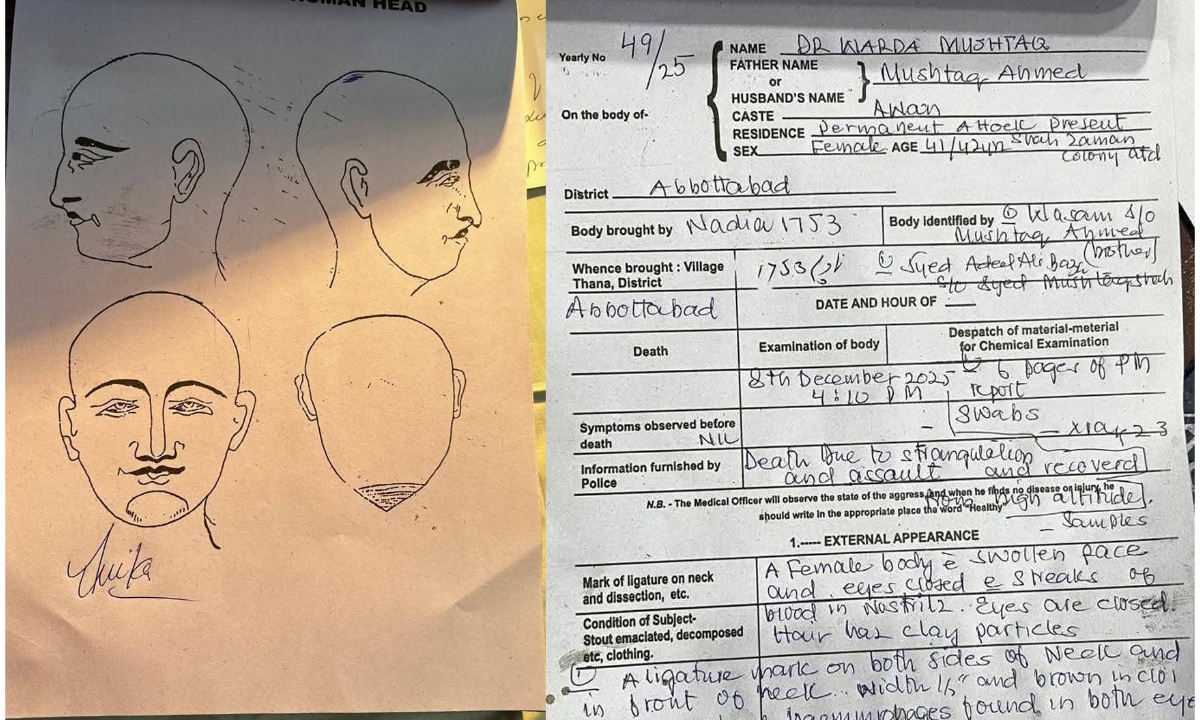 HUMAN HEAD
Yearly No 49/25
On the body of-
NAME DR WARDA MUSHTAQ
FATHER NAME
or
HUSBAND'S NAME
Mushtaq Ahmed
CASTE Awan
RESIDENCE Permanent Attock Present
SEX Female AGE 41/42yr Shah Zaman
Colony atd
District Abbottabad
Body brought by Nadia 1753
Body identified by ① Wasam S/O
Mushtaq Ahmed
(brother)
Whence brought : Village
Thana, District
1753
Syed Adeel Ali
S/O Syed Mushtaq shah
Abbottabad
DATE AND HOUR OF
Death
Examination of body
Despatch of material-meterial
for Chemical Examination
8th December 2025
4:10 PM
6 pages of PM
report
Symptoms observed before
death NIL
Swabs
- xray 23
Information furnished by
Police
Death Due to strangulation
and assault and recoverd
from high altitude.
N.B. - The Medical Officer will observe the state of the aggress, and when he finds no disease on injury, he
should write in the appropriate place the word "Healthy"
- Samples
1.----- EXTERNAL APPEARANCE
Mark of ligature on neck
and dissection, etc.
A Female body c swollen face
and eyes closed c streaks of
Condition of Subject-
Stout emaclated, decomposed
etc, clothing.
blood in Nostrilz. Eyes are closed.
Hair haz clay particles
① A ligature mark on both sides of Neck and
in front of neck.. width 1/2" and brown in clor
haemmorhages found in both eye